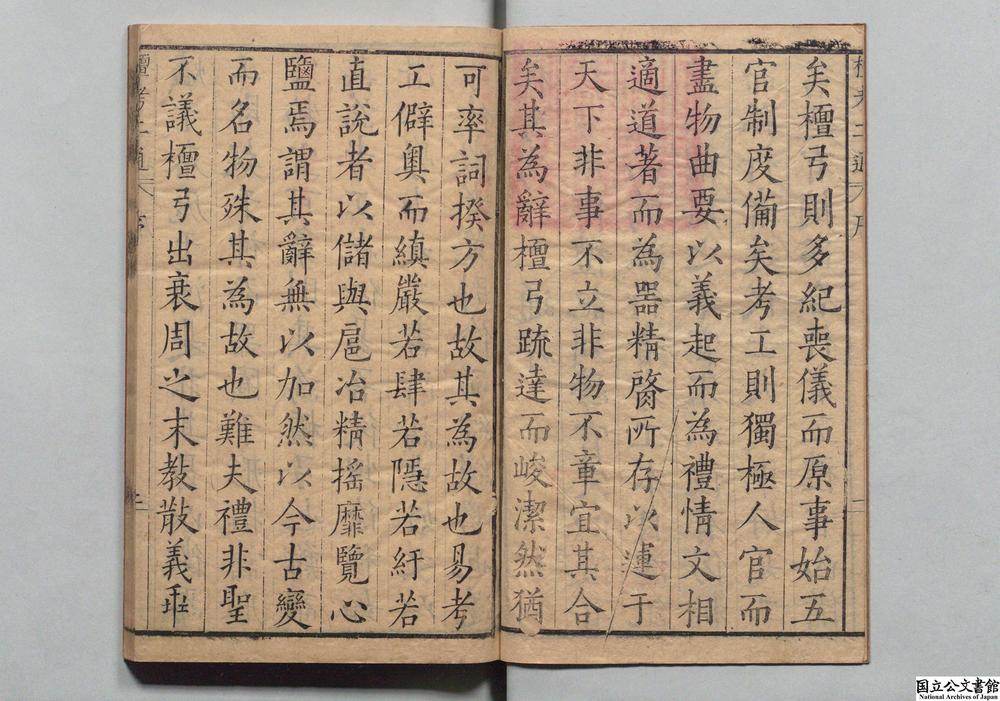 矣檀弓則多紀喪儀而原事始五
官制度備矣考工則獨極人官而
盡物曲要以義起而為禮情文相
適道著而為器精啓所存以運于
天下非事不立非物不章宜其合
矣其為辭檀弓疏達而峻潔然猶
可率詞揆方也故其為故也易考
工僻奧而縝嚴若肆若隱若紆若
直說者以儲與扈冶精搖靡覽心
鹽焉謂其辭無以加然以今古變
而名物殊其為故也難夫禮非聖
不議檀弓出衰周之末教散義乖
国立公文書館
National Archives of Japan